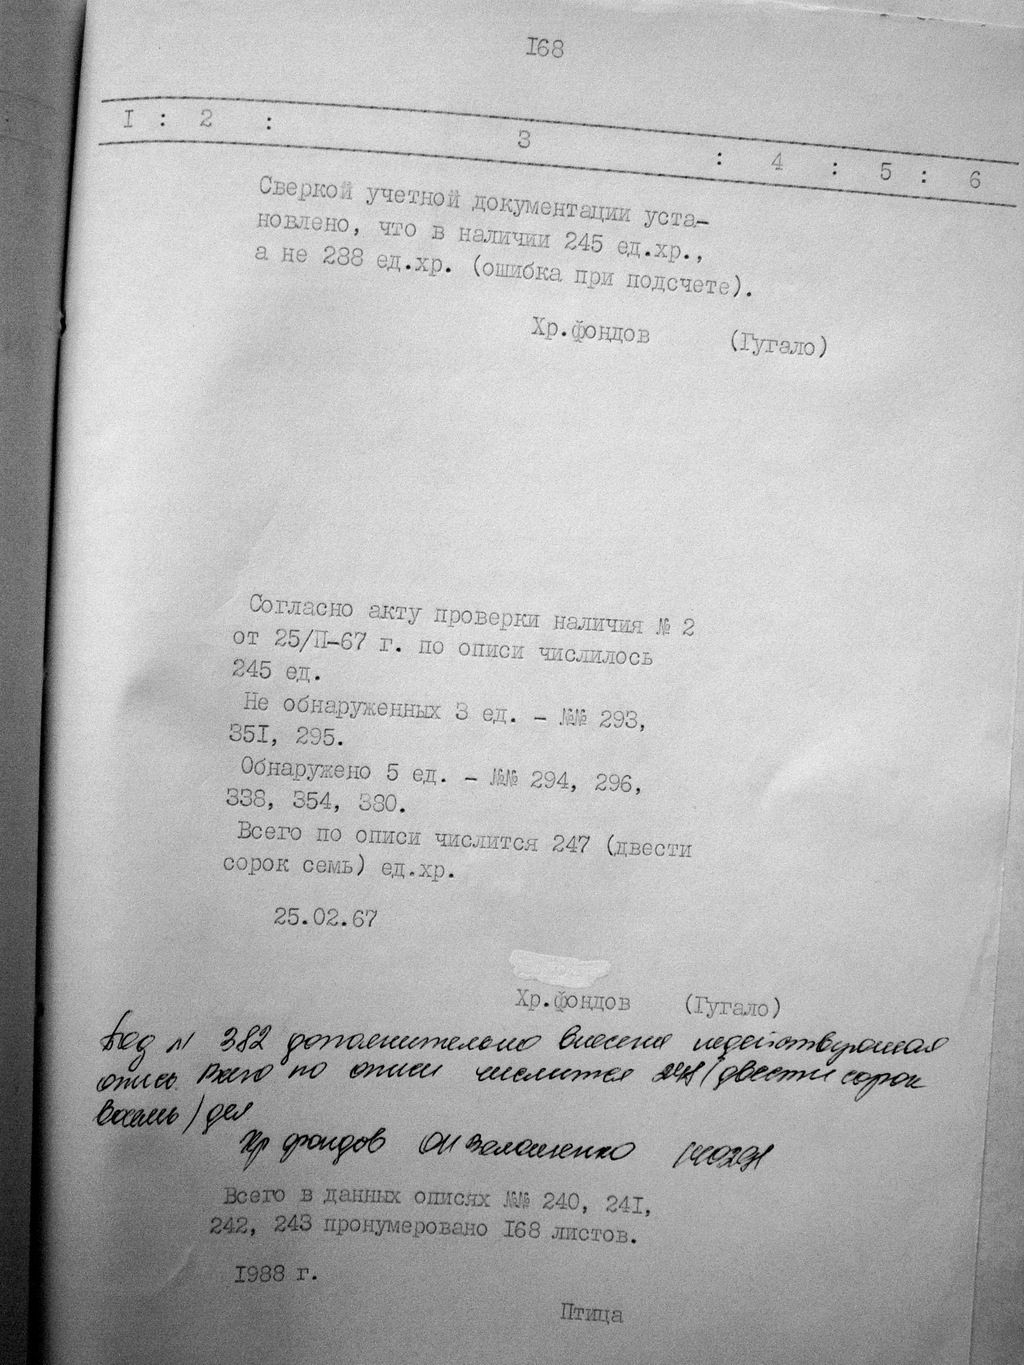 I68
I : 2 : 3 : 4 : 5 : 6
Сверкой учетной документации уста-
новлено, что в наличии 245 ед.хр.,
а не 288 ед.хр. (ошибка при подсчете).
Хр.фондов (Гугало)
Согласно акту проверки наличия № 2
от 25/П-67 г. по описи числилось
245 ед.
Не обнаруженных 3 ед. - №№ 293,
35I, 295.
Обнаружено 5 ед. - №№ 294, 296,
338, 354, 380.
Всего по описи числится 247 (двести
сорок семь) ед.хр.
25.02.67
Хр.фондов (Гугало)
Под N 382 дополнительно внесена недействующая
опись. Всего по описи числится 248 /двести сорок
восемь/ дел
Хр фондов
Всего в данных описях №№ 240, 24I,
242, 243 пронумеровано I68 листов.
I988 г.
Птица